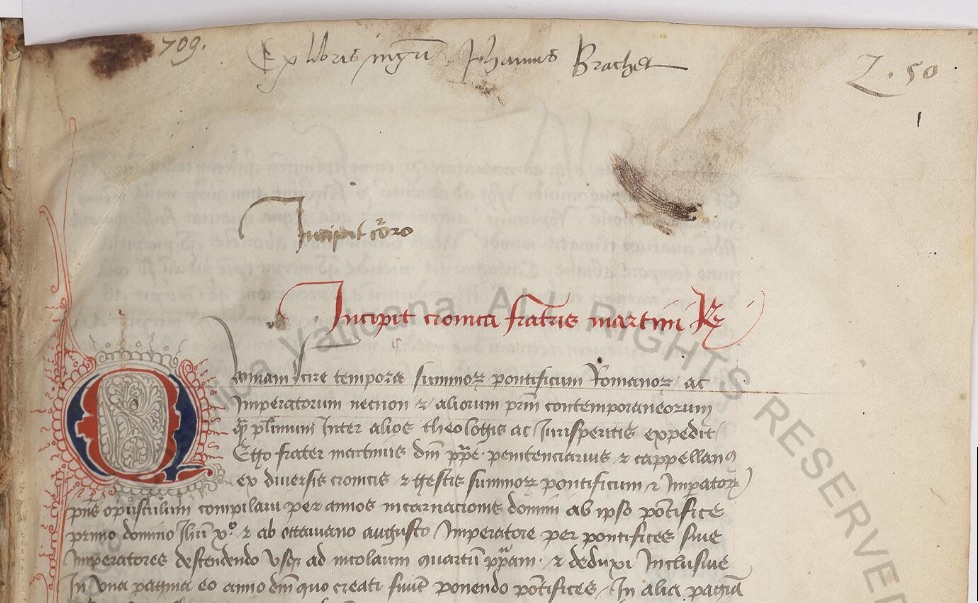 709.
Ex libris mgri Johannis Brachet
Z. 50
1
Incipit coro
Incipit cronica fratris martini
Quoniam scire tempora summorꝝ pontificum Romanorꝝ ac
Imperatorum necnon ⁊ aliorum prm contemporaneorum
qr plimum inter alios theologis ac Jurisperitis expedit
Ego frater martinus dm ppe penitenciarius ⁊ cappellanꝰ
ex diversis cronicis ⁊ gestis summorꝝ pontificum ⁊ Impatorꝝ
pns opusculum compilavi per annos incarnacionis domini ab ipso pontifice
primo domino Jhu xpo ⁊ ab ottaviano augusto Imperatore per pontifices sive
Imperatores descendendo usqꝫ ad nicolaum quartum ppam ⁊ deduxi Inclusive
In una pagina eo anno dm quo creati fuint ponendo pontifices / In alia pagia
Vaticana ALL RIGHTS RESERVED